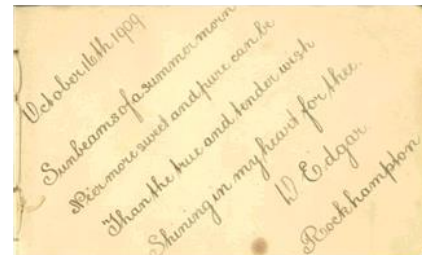 October 16th 1909
Sunbeams of a summer morn
Ne'er more sweet and pure can be
Than the true and tender wish
Shining in my heart for thee.
W Edgar.
Rockhampton